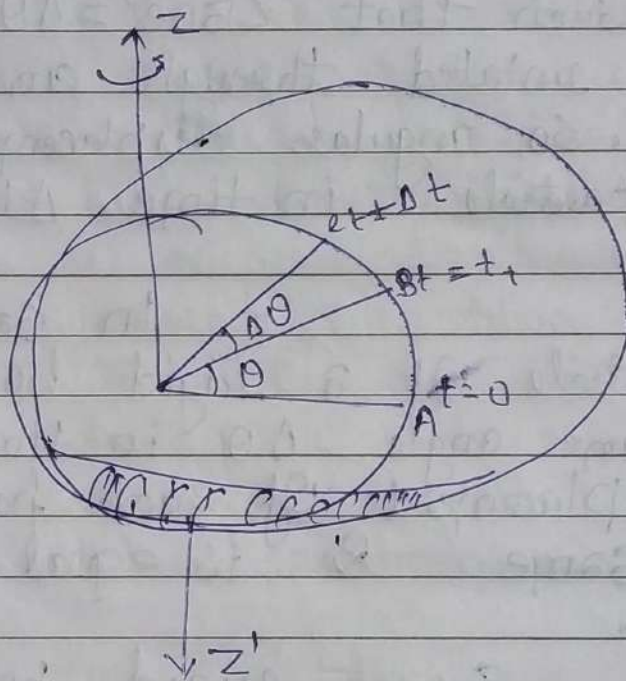 Z
et+Δt
Bt = t₁
Δθ
θ
A t=0
Z'